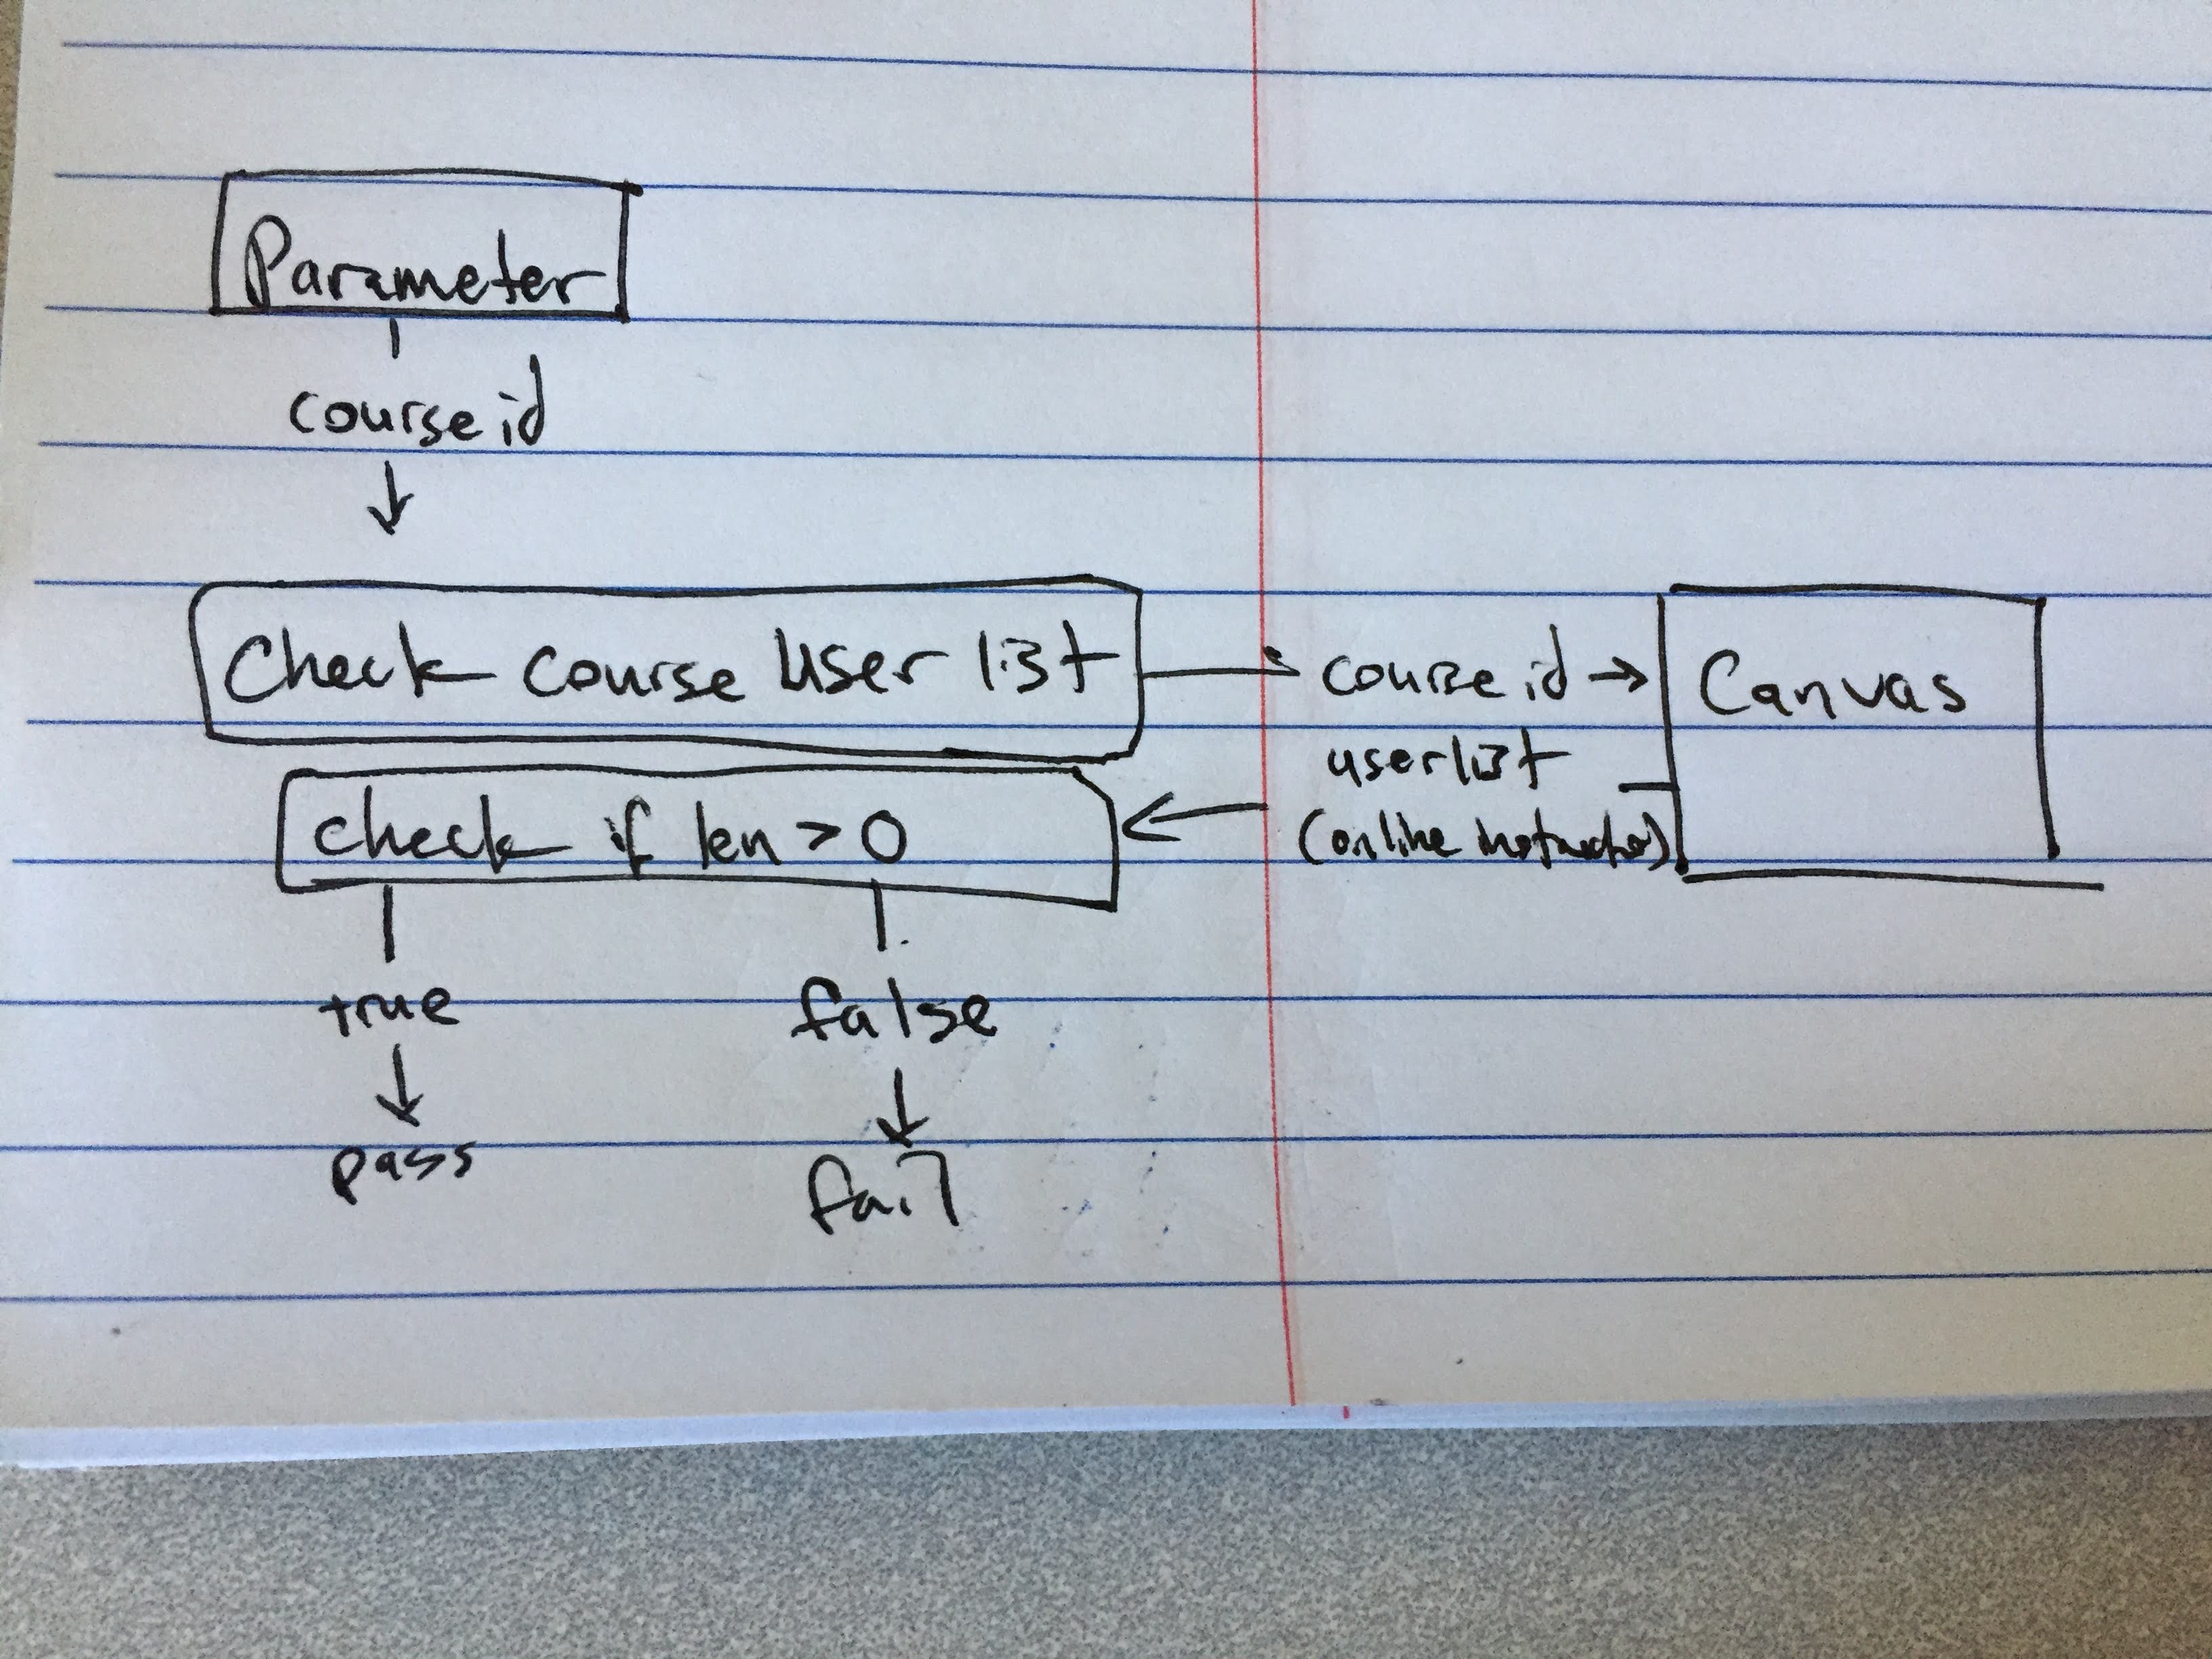 Parameter
course id
Check course user list
course id
Canvas
userlist
(online instructor)
check if len > 0
true
false
pass
fail